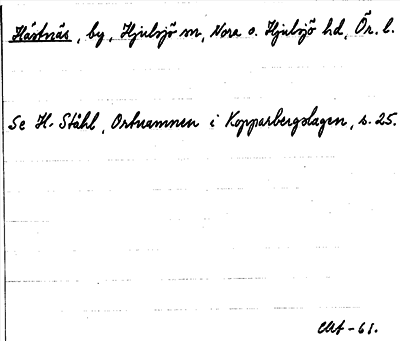 Hästnäs, by, Hjulsjö sn, Nora o. Hjulsjö hd, Ör. l.
Se H. Ståhl, Ortnamnen i Kopparbergslagen, s. 25.
-61.